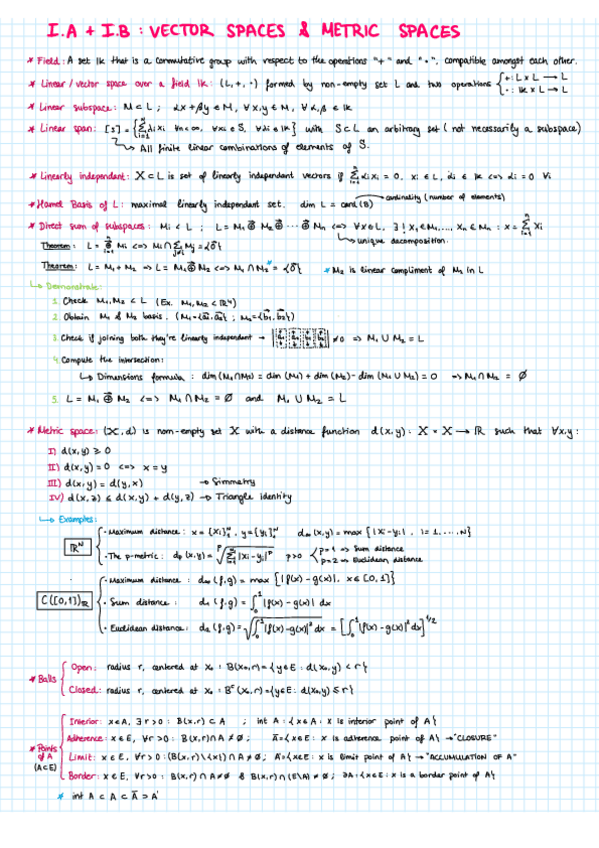 I.A + I.B : VECTOR SPACES & METRIC SPACES
* Field: A set lk that is a commutative group with respect to the operations "+" and "·", compatible amongst each other.
* Linear / vector space over a field lk: (L,+,·) formed by non-empty set L and two operations { +: L x L → L
· : lk x L → L
* Linear subspace: M ⊂ L ; αx+βy ∈ M, ∀x,y ∈ M, ∀α,β ∈ lk
* Linear span: [S] = {∑ᵢ₌₁ⁿ λixi ∀n<∞, ∀xi∈S, ∀λi∈lk} with S⊂L an arbitrary set (not necessarily a subspace)
↳ All finite linear combinations of elements of S.
* Linearly independent: X⊂L is set of linearly independent vectors if ∑ᵢ₌₁ⁿ λixi = 0, xi ∈ L, λi ∈ lk <=> λi=0 ∀i
* Hamel Basis of L: maximal linearly independent set. dim L = card(B) cardinality (number of elements)
* Direct sum of subspaces: Mi < L ; L = M₁ ⊕ M₂ ⊕ ··· ⊕ Mn <=> ∀x∈L, ∃! x₁∈M₁,..., xn∈Mn : x = ∑ᵢ₌₁ⁿ xi
↳ unique decomposition.
Theorem: L = ⊕ Mi <=> Mi ∩ ∑ Mj = {0⃗}
Theorem: L = M₁ + M₂ => L = M₁ ⊕ M₂ <=> M₁ ∩ M₂* = {0⃗} * M₂ is linear compliment of M₁ in L
↳ Demonstrate:
1. Check M₁, M₂ < L (Ex. M₁, M₂ < ℝ⁴)
2. Obtain M₁ & M₂ basis. (M₁={a⃗₁,a⃗₂} ; M₂={b⃗₁,b⃗₂})
3. Check if joining both they're linearly independent → ≠0 => M₁ ∪ M₂ = L
4. Compute the intersection:
↳ Dimensions formula : dim(M₁∩M₂) = dim(M₁) + dim(M₂) - dim(M₁ ∪ M₂) = 0 => M₁ ∩ M₂ = Ø
5. L = M₁ ⊕ M₂ <=> M₁ ∩ M₂ = Ø and M₁ ∪ M₂ = L
* Metric space: (X,d) is non-empty set X with a distance function d(x,y): X × X → ℝ such that ∀x,y:
I) d(x,y) ≥ 0
II) d(x,y) = 0 <=> x = y
III) d(x,y) = d(y,x) → Simmetry
IV) d(x,z) ≤ d(x,y) + d(y,z) → Triangle identity
↳ Examples:
ℝᴺ { · Maximum distance: x = {xi}₁ᴺ, y = {yi}₁ᴺ d∞(x,y) = max {|xi-yi|, i=1,...,N}
· The p-metric: dp(x,y) = ᵖ√∑ᵢ₌₁ᴺ |xi-yi|ᵖ p>0 { p=1 => Sum distance
p=2 => Euclidean distance
C([0,1])ℝ { · Maximum distance : d∞(f,g) = max {|f(x)-g(x)|, x∈[0,1]}
· Sum distance : d₁(f,g) = ∫₀¹ |f(x)-g(x)| dx
· Euclidean distance: d₂(f,g) = √∫₀¹ |f(x)-g(x)|² dx = [∫₀¹ |f(x)-g(x)|² dx]^1/2
* Balls { Open: radius r, centered at x₀ : B(x₀,r) = {y∈E : d(x₀,y) < r}
Closed: radius r, centered at x₀ : Bᶜ(x₀,r) = {y∈E : d(x₀,y) ≤ r}
* Points of A (A⊂E) { Interior: x∈A, ∃ r>0 : B(x,r) ⊂ A ; int A : {x∈A : x is interior point of A}
Adherence: x∈E, ∀r>0 : B(x,r)∩A ≠ Ø ; Ā = {x∈E : x is adherence point of A} → "CLOSURE"
Limit: x∈E, ∀r>0 : (B(x,r)\{x}) ∩ A ≠ Ø ; A' = {x∈E : x is limit point of A} → "ACCUMULATION OF A"
Border: x∈E, ∀r>0 : B(x,r)∩A≠Ø & B(x,r)∩(E\A) ≠ Ø ; ∂A : {x∈E : x is a border point of A}
* int A ⊂ A ⊂ Ā ⊃ A'